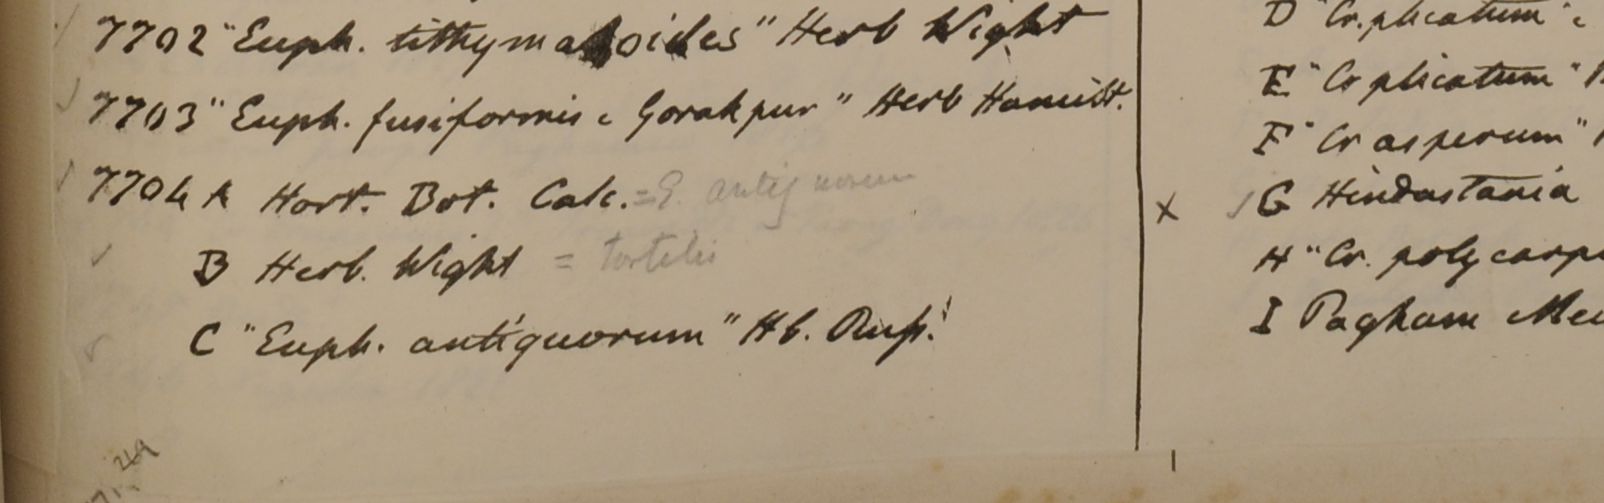 7702 "Euph. tithymaloides" Herb Wight
7703 "Euph. fusiformis c Gorakpur" Herb Hamilt.
7704 A Hort. Bot. Calc. = E. antiquorum
B Herb. Wight = tortilis
C "Euph. antiquorum" Hb. Rusp.!
49
D "Cr. plicatum" c
E "Cr plicatum"
F "Cr asperum"
x G Hindustania
H "Cr. polycarp
I Pagham Mew